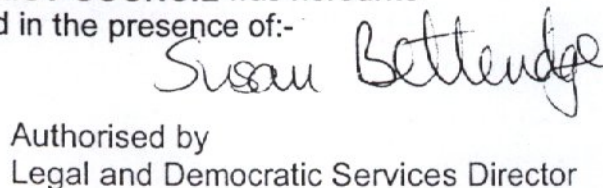 d in the presence of:-
Susan Bettendge
Authorised by
Legal and Democratic Services Director